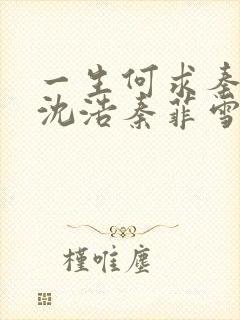 一生何求秦
沈浩秦菲雪
槿唯尘